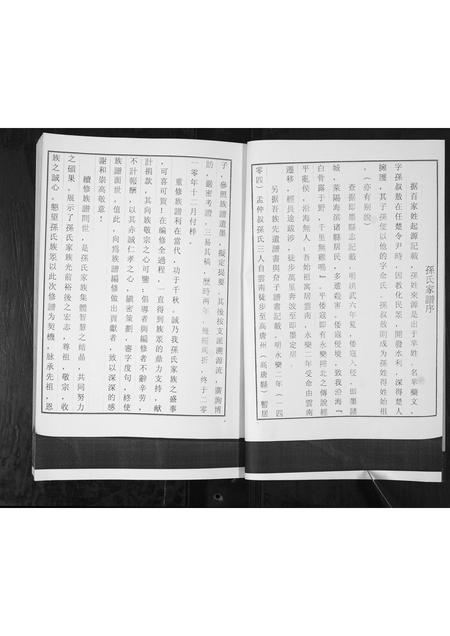 孫氏家譜序
據百家姓起源記載，孫姓來源是出于羋姓，名羋艾
字孫叔敖在任楚令尹時，因教化民眾，開發水利，深得楚人
擁護，其子孫便以他的字命氏。孫叔敖則成為孫姓得姓始祖
。（亦有別說）
查據即墨縣志記載，明洪武六年夏，倭寇入侵，即墨諸
城，萊陽海濱諸縣居民，多遭殺害，倭寇侵境，致我沿海「
白骨露于野，千里無雞鳴」。平倭寇即有永樂掃北之傳說經
平寇侯，沿海無人；吾始祖寓居雲南，永樂二年受命由雲南
遷移，經長途跋涉，徒步萬里奔波至即墨定居。
另據吾族先遺譜書與 譜書記載，明永樂二年（一四
零四）孟仲叔孫氏三人自雲南徒步至高唐州（高唐縣）暫居
子，參照族譜遺墨，擬定提要。其後按支派溯源流，廣詢博
訪，嚴密考證，三易其稿，歷時兩年，幾經周折，終于二零
一零年十二月付梓。
重修族譜利在當代，功于千秋。誠乃我孫氏家族之盛事
，可喜可賀！在編修全過程，一直得到族眾的鼎力支持，獻
計捐款，其向族敬宗之心可鑒；倡導者與編修者不辭辛勞，
不計報酬，以其赤誠仁孝之心，縝密策劃，審字度句，終使
族譜面世，值此，向為族譜編修做出貢獻者，致以深深的感
謝和崇高敬意！
續修族譜問世，是孫氏家族集體智慧之結晶，共同努力
之碩果，展示了孫氏家族光前裕後之宏志，尊祖，敬宗，收
族之誠心，懇望孫氏族眾以此次修譜為契機，脉承先祖，恩